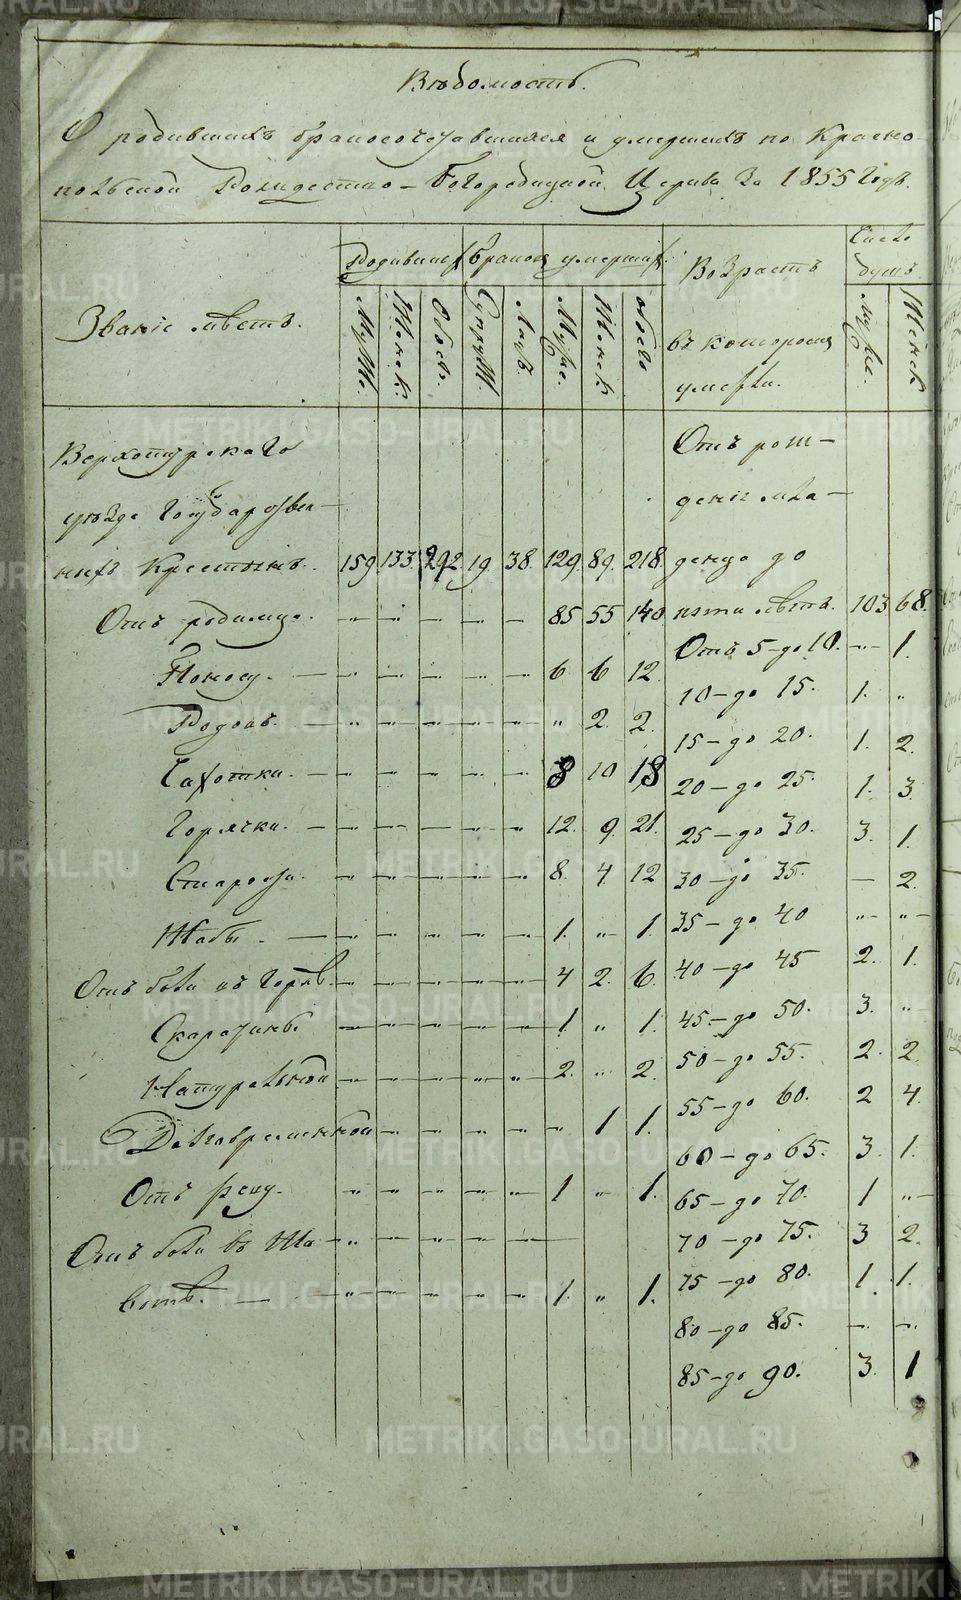 Вѣдомость.
О родившихъ бракосочетавшихся и умершихъ по Красно-
польской Рождество-Богородицкой Церкви За 1855 Годъ.
Званіе мѣстъ. Родивших Браков умерших Возрастъ Число душъ
Муж. Женск. Обоег. Супруж. Лицъ. Муже. Женск обоего въ которомъ умерли. Муже. Женск
Верхотурскаго Отъ рож-
уѣзда Государствен- денія мла-
ныхъ Крестьянъ. 159 133. 292 19 38. 129. 89. 218. денца до
Отъ родимца. - - - - - 85 55 140 пяти лѣтъ. 103 68.
Отъ 5-до 10. - 1.
Поносу. - - - - - 6 6 12. 10-до 15. 1. "
Родовъ. - - - - - " 2. 2. 15-до 20. 1. 2.
Чахотки. - - - - - 8 10 18 20-до 25. 1. 3.
Горячки. - - - - - 12. 9. 21. 25-до 30. 3. 1.
Старости. - - - - - 8. 4. 12 30-до 35. - 2.
Жабы. - - - - - 1. " 1. 35-до 40 " "
Отъ боли въ Горлѣ. - - - - - 4 2. 6. 40-до 45 2. 1.
Скарлатины - - - - - 1 " 1. 45-до 50. 3. "
Натуральной - - - - - 2. " 2. 50-до 55. 2. 2.
55-до 60. 2 4.
Долговременной - - - - - " 1 1. 60-до 65. 3. 1.
Отъ - - - - - 1 " 1. 65-до 70. 1 "
Отъ боли въ Жи- - - - - - 70-до 75. 3 2.
вотѣ. - - - - - 1. " 1. 75-до 80. 1. 1.
80-до 85. - -
85-до 90. 3. 1
METRIKI.GASO-URAL.RU